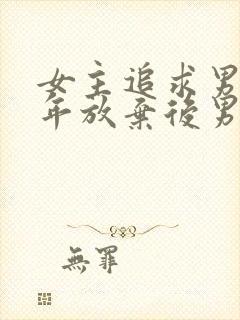 女主追求男
年放棄後男
無罪